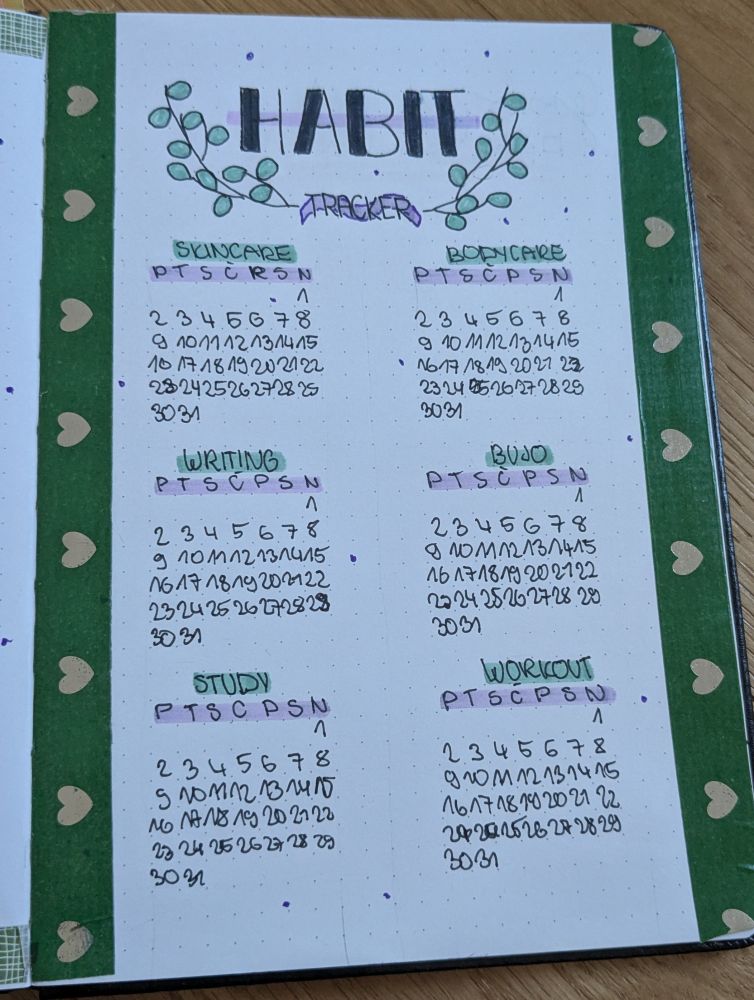 HABIT
TRACKER
SKINCARE
P T S Č R S N
1
2 3 4 5 6 7 8
9 10 11 12 13 14 15
16 17 18 19 20 21 22
23 24 25 26 27 28 29
30 31
BODYCARE
P T S Č P S N
1
2 3 4 5 6 7 8
9 10 11 12 13 14 15
16 17 18 19 20 21 22
23 24 25 26 27 28 29
30 31
WRITING
P T S Č P S N
1
2 3 4 5 6 7 8
9 10 11 12 13 14 15
16 17 18 19 20 21 22
23 24 25 26 27 28 29
30 31
BUJO
P T S Č P S N
1
2 3 4 5 6 7 8
9 10 11 12 13 14 15
16 17 18 19 20 21 22
23 24 25 26 27 28 29
30 31
STUDY
P T S Č P S N
1
2 3 4 5 6 7 8
9 10 11 12 13 14 15
16 17 18 19 20 21 22
23 24 25 26 27 28 29
30 31
WORKOUT
P T S Č P S N
1
2 3 4 5 6 7 8
9 10 11 12 13 14 15
16 17 18 19 20 21 22
23 24 25 26 27 28 29
30 31